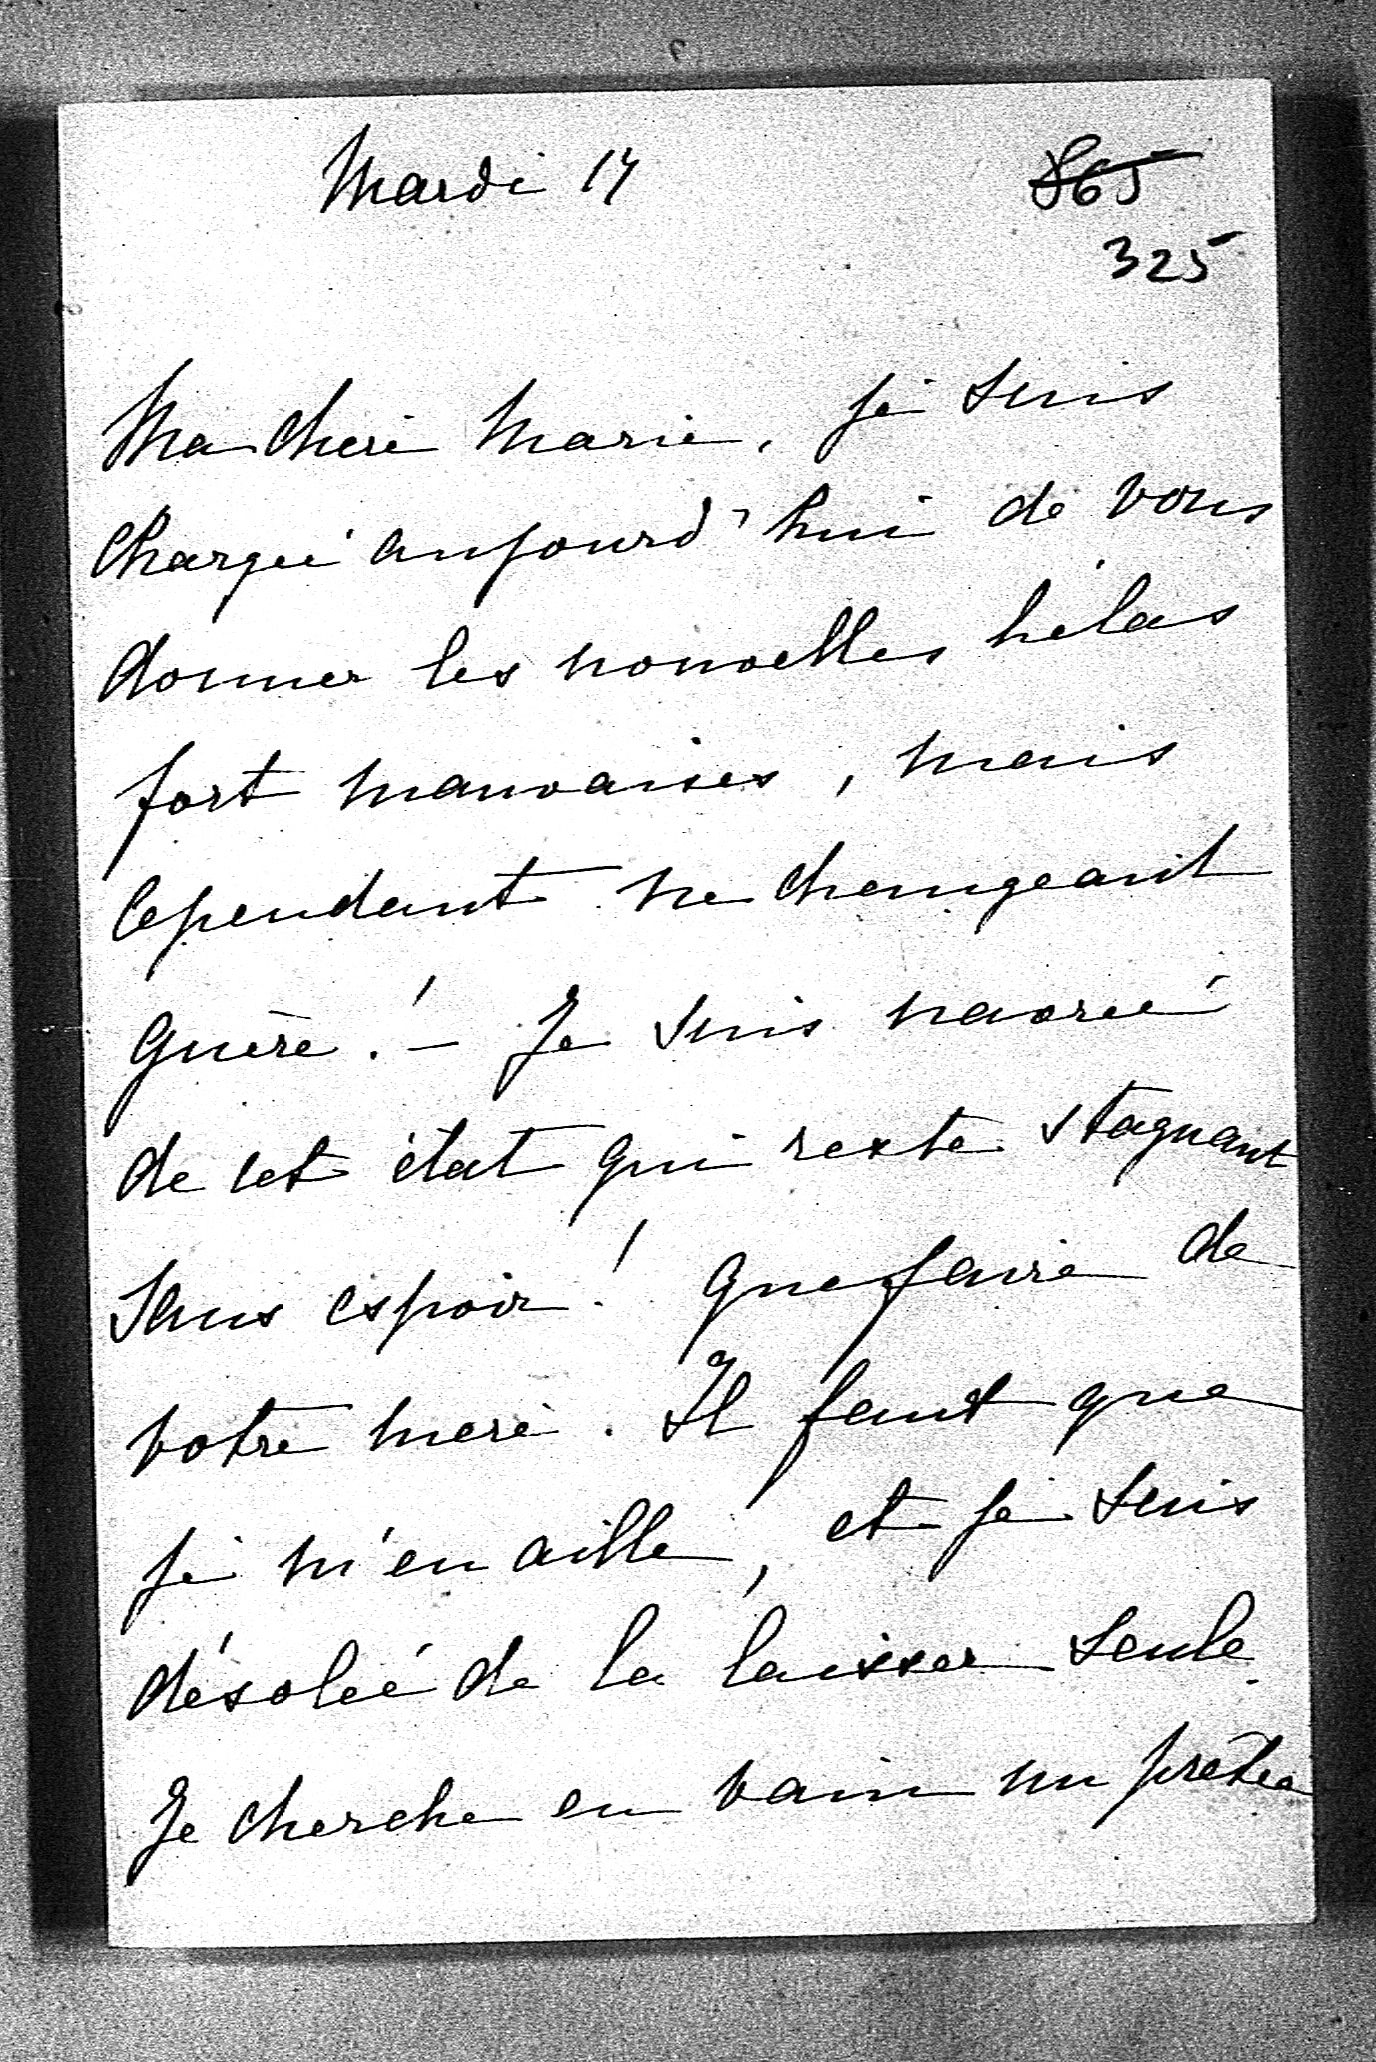 Mardi 17
865
325
Ma chère Marie, je suis
chargée aujourd'hui de vous
donner les nouvelles hélas
fort mauvaises, mais
cependant ne changeant
guère ! — Je suis navrée
de cet état qui reste stagnant
sans espoir ! Que faire de
votre mère. Il faut que
je m'en aille, et je suis
désolée de la laisser seule.
Je cherche en vain un